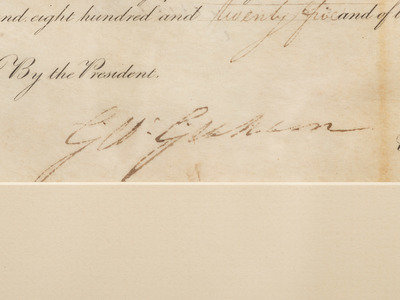 nd eight hundred and twenty five and of
By the President.
Geo: Graham